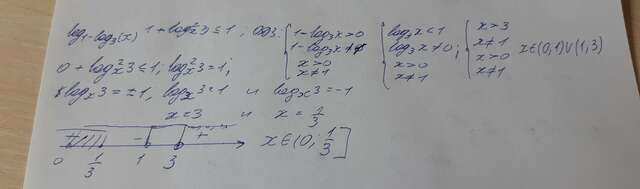 log₁₋log₃(x) 1 + log²ₓ3 ≤ 1, ОДЗ: { 1-log₃x>0 { log₃x<1 { x>3
1-log₃x≠1 log₃x≠0 ; x≠1 x∈(0,1)∪(1,3)
x>0 x>0 x>0
x≠1 x≠1 x≠1
0 + log²ₓ3 ≤ 1; log²ₓ3 = 1;
logₓ3 = ±1, logₓ3 = 1 и logₓ3 = -1
x = 3 и x = 1/3
+ - +
0 1/3 1 3 x∈(0; 1/3]